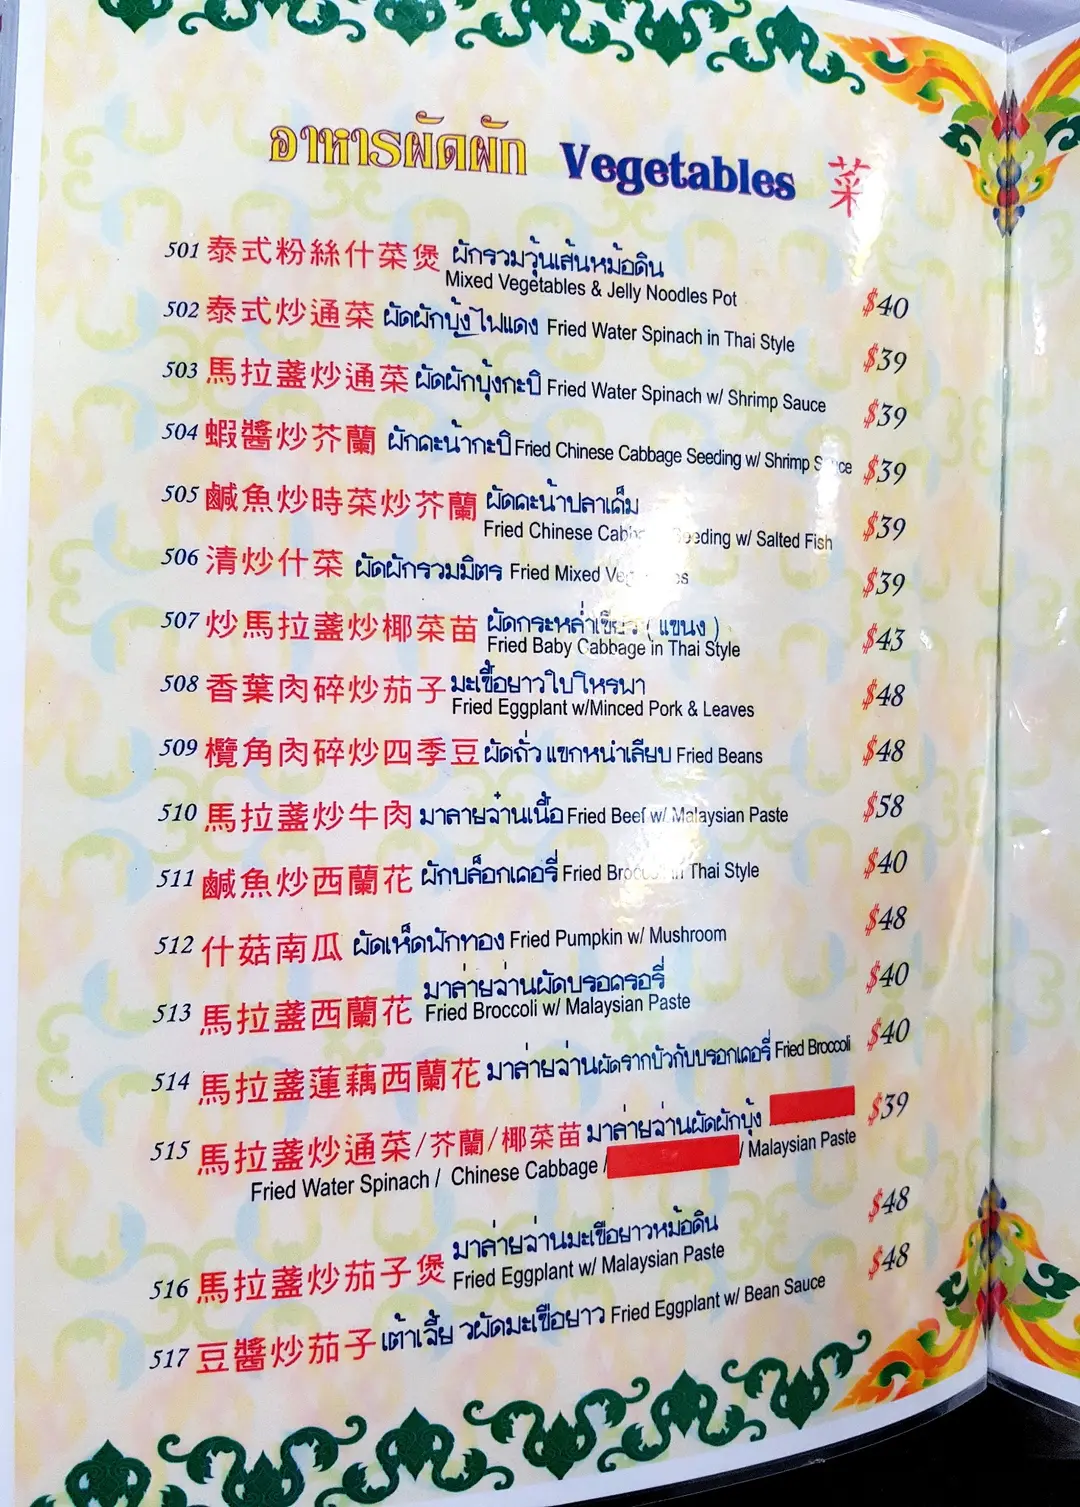 อาหารผัดผัก Vegetables 菜
501 泰式粉絲什菜煲 ผักรวมวุ้นเส้นหม้อดิน
Mixed Vegetables & Jelly Noodles Pot $40
502 泰式炒通菜 ผัดผักบุ้งไฟแดง Fried Water Spinach in Thai Style $39
503 馬拉盞炒通菜 ผัดผักบุ้งกะปิ Fried Water Spinach w/ Shrimp Sauce $39
504 蝦醬炒芥蘭 ผักคะน้ากะปิ Fried Chinese Cabbage Seeding w/ Shrimp $39
505 鹹魚炒時菜炒芥蘭 ผัดคะน้าปลาเค็ม
Fried Chinese Seeding w/ Salted Fish $39
506 清炒什菜 ผัดผักรวมมิตร Fried Mixed $39
507 炒馬拉盞炒椰菜苗 ผัดกระหล่ำเขียว ( แขนง )
Fried Baby Cabbage in Thai Style $43
508 香葉肉碎炒茄子 มะเขื้อยาวใบโหรพา
Fried Eggplant w/Minced Pork & Leaves $48
509 欖角肉碎炒四季豆 ผัดถั่ว แขกหนำเลียบ Fried Beans $48
510 馬拉盞炒牛肉 มาลายจ๋านเนื้อ Fried Beef w/ Malaysian Paste $58
511 鹹魚炒西蘭花 ผักบล็อกเคอรี่ Fried in Thai Style $40
512 什菇南瓜 ผัดเห็ดฟักทอง Fried Pumpkin w/ Mushroom $48
513 馬拉盞西蘭花 มาล่ายจ่านผัดบรอครอรี่
Fried Broccoli w/ Malaysian Paste $40
514 馬拉盞蓮藕西蘭花 มาล่ายจ่านผัดรากบัวกับบรอกเคอรี่ Fried Broccoli $40
515 馬拉盞炒通菜/芥蘭/椰菜苗 มาล่ายจ่านผัดผักบุ้ง $39
Fried Water Spinach / Chinese Cabbage / / Malaysian Paste
516 馬拉盞炒茄子煲 มาล่ายจ่านมะเขือยาวหม้อดิน $48
Fried Eggplant w/ Malaysian Paste
517 豆醬炒茄子 เต้าเจี้ย วผัดมะเขือยาว Fried Eggplant w/ Bean Sauce $48